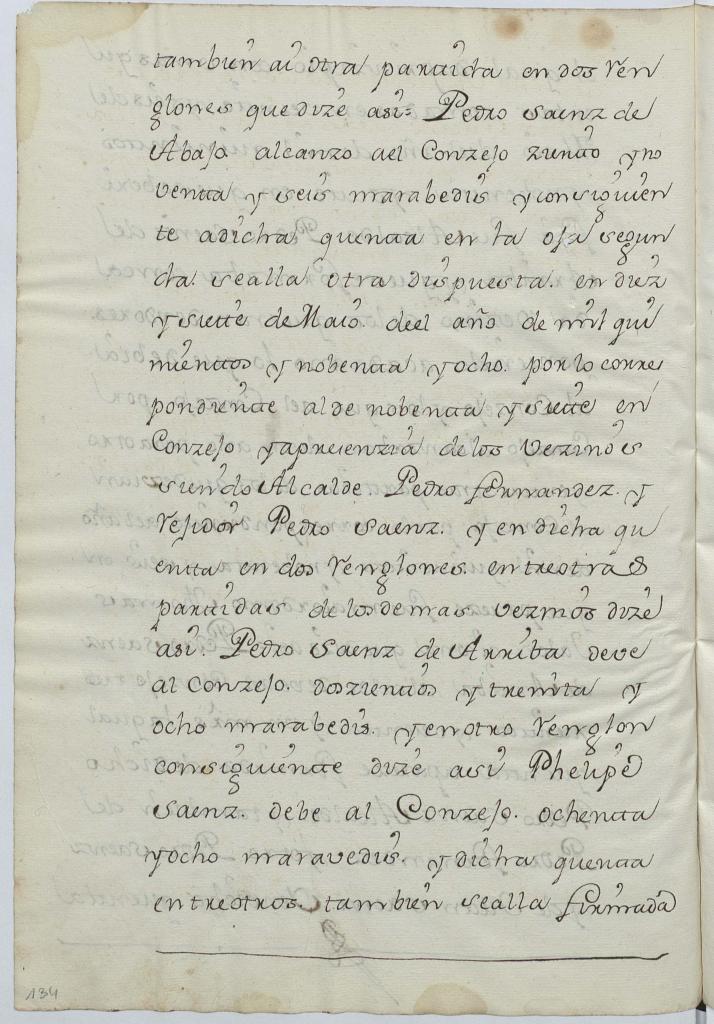 tambien ai otra partida en dos Ren
glones que dize asi: Pedro Saenz de
Abajo alcanzo ael Conzejo ziento y no
ventta y seis marabedis y consiguien
te adicha quenta en la oja segun
da. sealla otra dispuesta. en diez
y siette de Maio. deel año de mil qui
nientos y nobentta y ocho. por lo corres
pondientte al de nobentta y siette en
Conzejo yapresenzia de los Vezinos
siendo Alcalde. Pedro fernandez. y
Rejidor Pedro Saenz. y en dicha qu
entta en dos Renglones. entre otras
partidas de los demas vezinos dize
asi. Pedro Saenz de Arriba deve
al Conzejo. doszientos y treinta y
ocho marabedis. y en otro Renglon
consiguientte dize asi Phelipe
Saenz. debe al Conzejo. ochentta
y ocho maravedis. y dicha quentta
entre otros. tambien sealla firmada
134